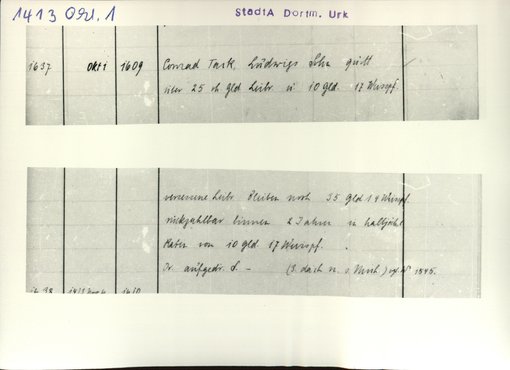 1413 Okt. 1 StadtA Dortm. Urk
1637 Okt 1 1609 Conrad Tack, Ludwigs Sohn quitt
über 25 rh Gld Leibr. u 10 Gld 17 Weispf.
versessene Leibr. Bleiben noch 35 Gld 14 Weispf.
rückzahlbar binnen 2 Jahren in halbjähr
Raten von 10 Gld 17 Weispf.
Or. aufgedr. S. - (S. dach u. o. Nº 1545.
1638 1610